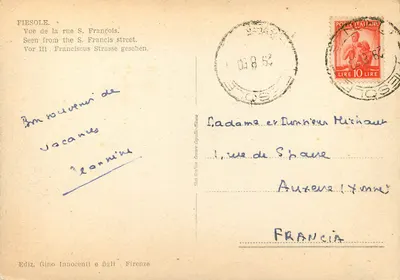 FIESOLE.
Vue de la rua S. François.
Seen from the S. Francis street.
Vor III Franciscus Strasse gesehen.
LIRE 10 LIRE
FIESOLE
Bon souvenir de
vacances
Jeannine
Madame et Monsieur Michaut
1, rue de
Auxerre (Yonne)
FRANCIA
Ediz. Gino Innocenti e figli - Firenze